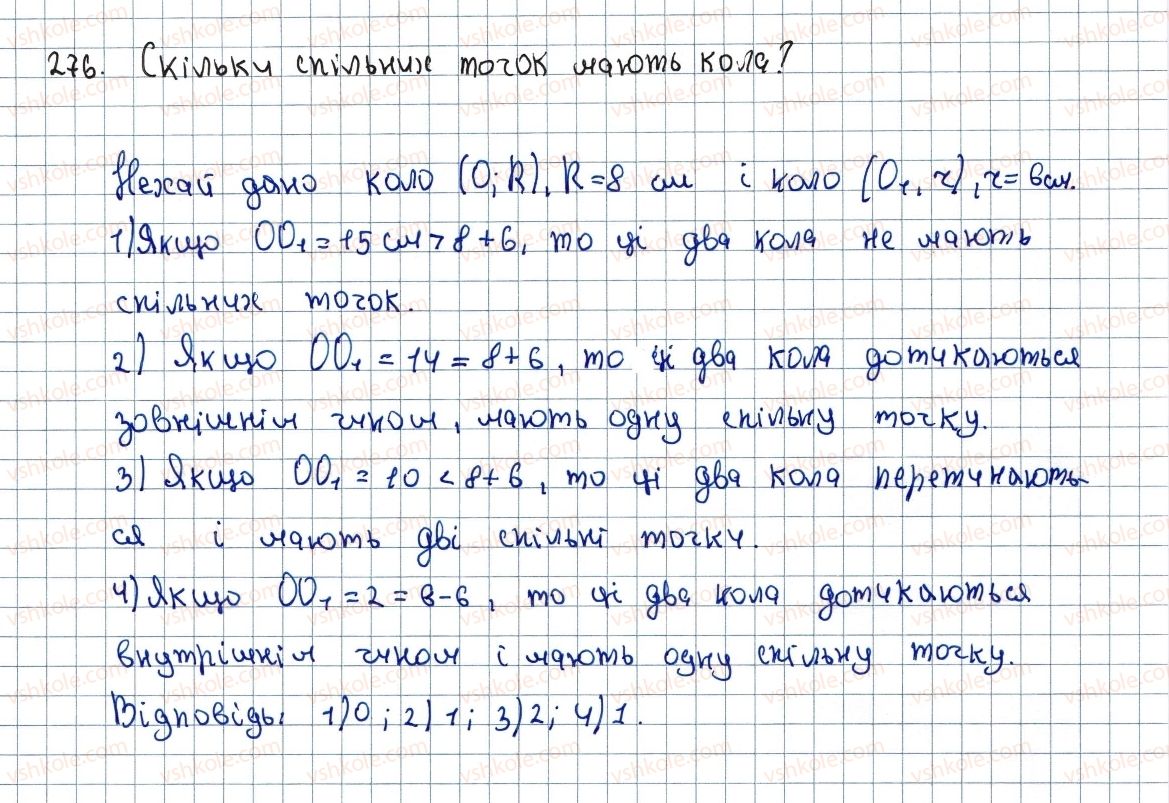 276. Скільки спільних точок мають кола?
Нехай дано коло (O; R), R = 8 см і коло (O₁, r), r = 6 см.
1) Якщо OO₁ = 15 см > 8 + 6, то ці два кола не мають
спільних точок.
2) Якщо OO₁ = 14 = 8 + 6, то ці два кола дотикаються
зовнішнім чином, мають одну спільну точку.
3) Якщо OO₁ = 10 < 8 + 6, то ці два кола перетинають-
ся і мають дві спільні точки.
4) Якщо OO₁ = 2 = 8 - 6, то ці два кола дотикаються
внутрішнім чином і мають одну спільну точку.
Відповідь: 1) 0; 2) 1; 3) 2; 4) 1.
vshkole.com